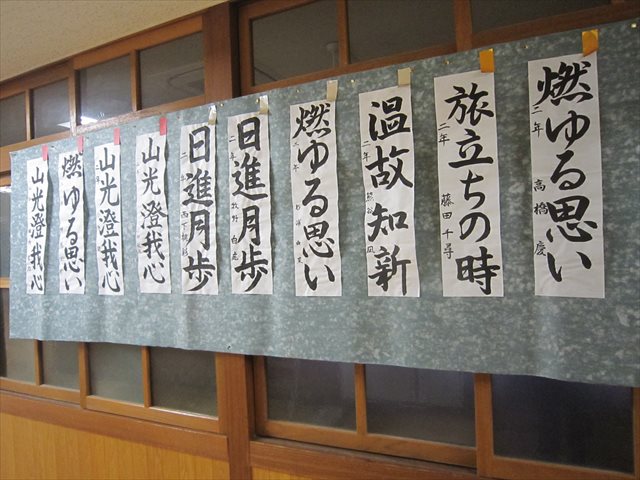 燃ゆる思い
二年 高橋 慶
旅立ちの時
二年 藤田 千尋
温故知新
二年
燃ゆる思い
日進月歩
二年 牧野
日進月歩
二年
山光澄我心
山光澄我心
燃ゆる思い
山光澄我心